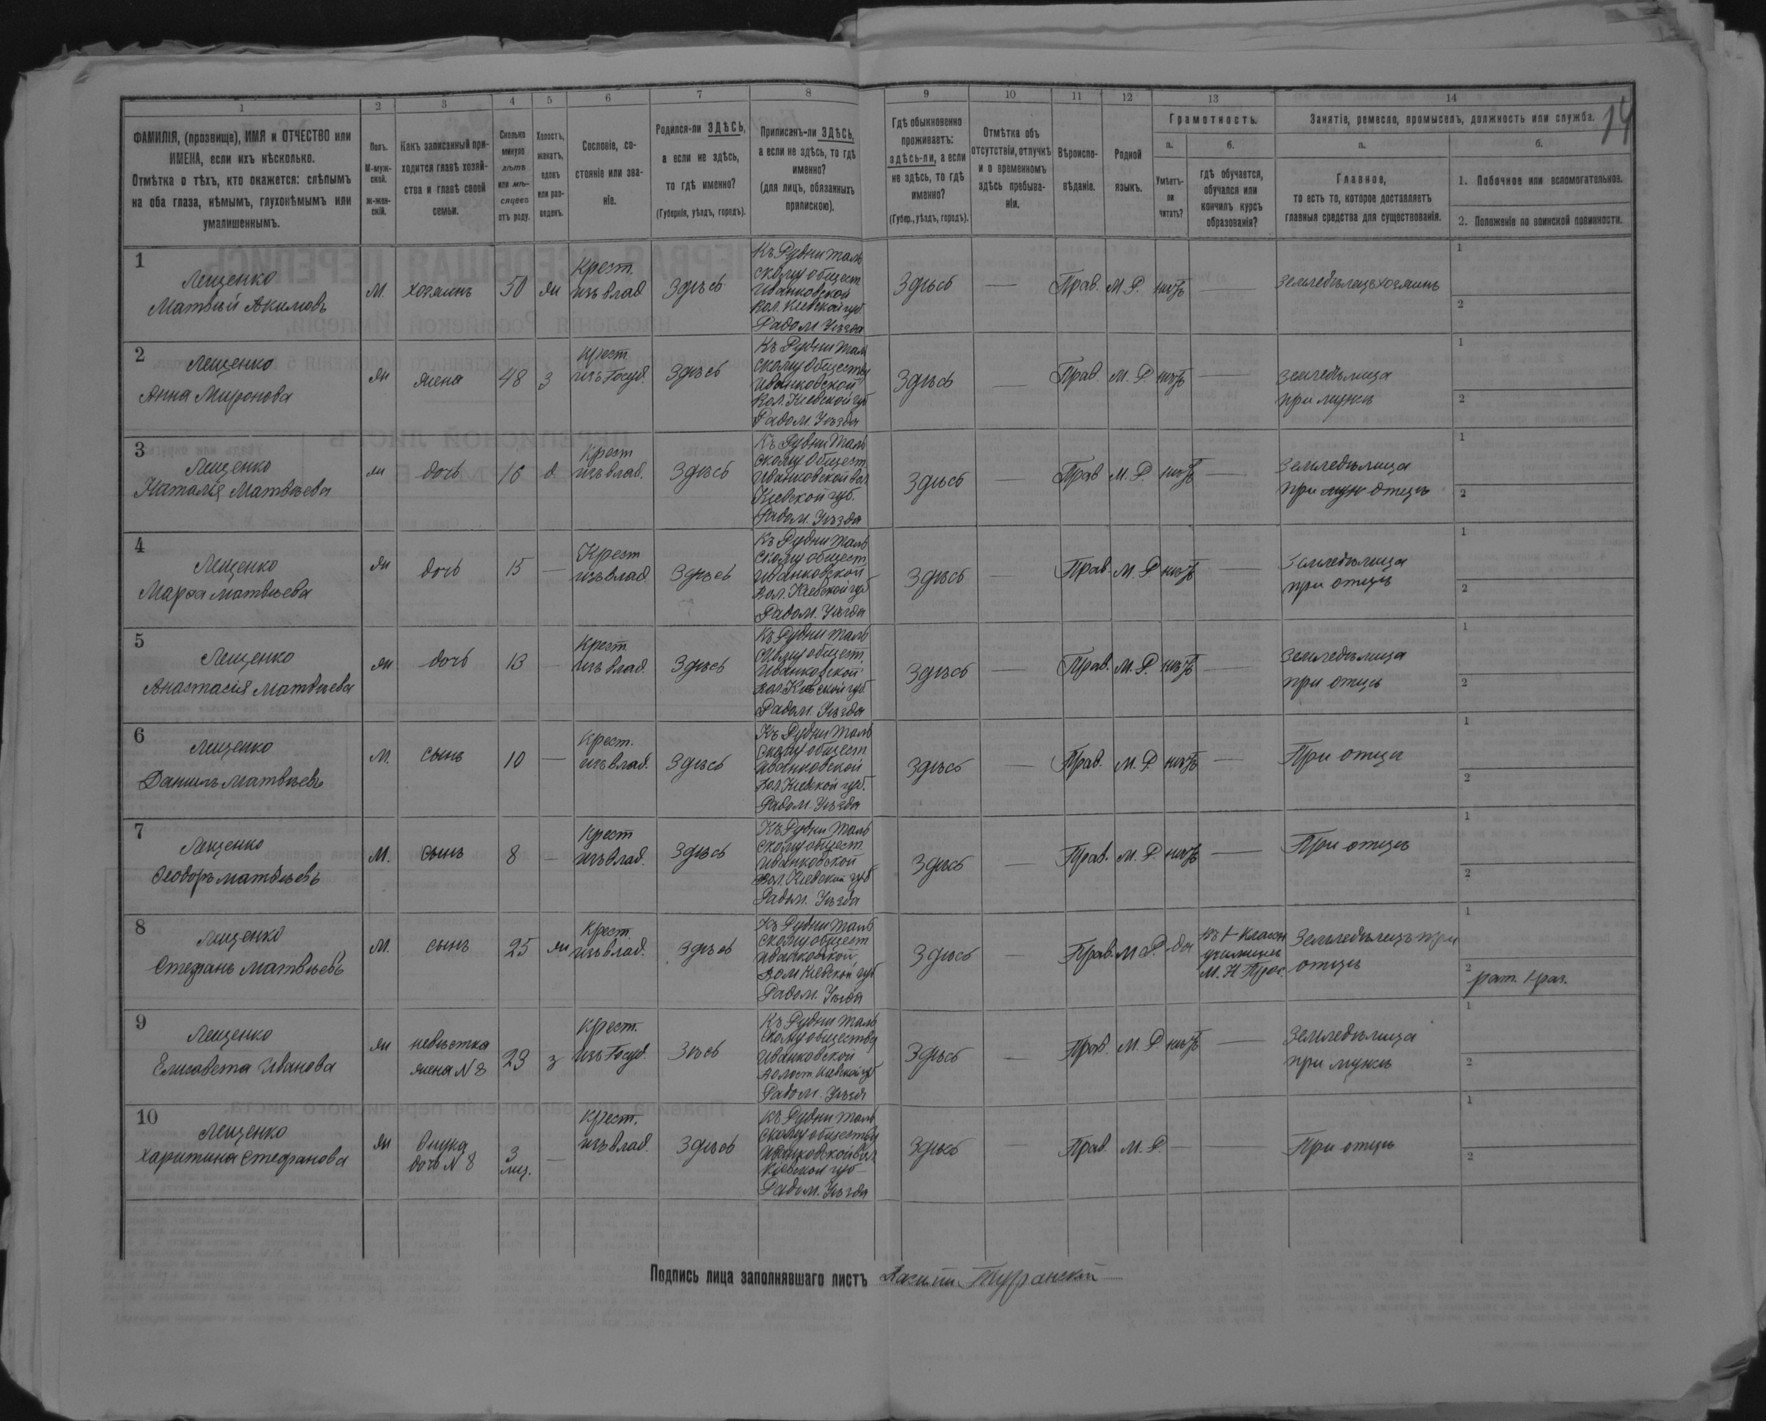 1 2 3 4 5 6 7 8 9 10 11 12 13 14
14
ФАМИЛІЯ, (прозвище), ИМЯ и ОТЧЕСТВО или
ИМЕНА, если ихъ нѣсколько.
Отмѣтка о тѣхъ, кто окажется: слѣпымъ
на оба глаза, нѣмымъ, глухонѣмымъ или
умалишеннымъ.
Полъ.
М-муж-
ской.
Ж-жен-
скій.
Какъ записанный при-
ходится главѣ хозяй-
ства и главѣ своей
семьи.
Сколько
минуло
лѣтъ
или мѣ-
сяцевъ
отъ роду.
Холостъ,
женатъ,
вдовъ
или раз-
веденъ.
Сословіе, со-
стояніе или зва-
ніе.
Родился-ли ЗДѢСЬ,
а если не здѣсь,
то гдѣ именно?
(Губернія, уѣздъ, городъ).
Приписанъ-ли ЗДѢСЬ,
а если не здѣсь, то гдѣ
именно?
(для лицъ, обязанныхъ
припискою).
Гдѣ обыкновенно
проживаетъ:
здѣсь-ли, а если
не здѣсь, то гдѣ
именно?
(Губер., уѣздъ, городъ).
Отмѣтка объ
отсутствіи, отлучкѣ
и о временномъ
здѣсь пребыва-
ніи.
Вѣроиспо-
вѣданіе.
Родной
языкъ.
Грамотность.
а.
Умѣетъ-
ли
читать?
б.
гдѣ обучается,
обучался или
кончилъ курсъ
образованія?
Занятіе, ремесло, промыселъ, должность или служба.
а.
Главное,
то есть то, которое доставляетъ
главныя средства для существованія.
б.
1. Побочное или вспомогательное.
2. Положеніе по воинской повинности.
1
Лещенко
Матвѣй Акимовъ
М.
хозяинъ
50
жн
Крест.
изъ влад
Здѣсь
Къ Рудни Таль
скому общест
Иванковской
Вол. Кіевской губ.
Радом. Уѣзда
Здѣсь
—
Прав.
М. Р.
нѣтъ
—
Земледѣлецъ хозяинъ
1
2
2
Лещенко
Анна Миронова
жн
жена
48
з
Крест
изъ Госуд.
Здѣсь
Къ Рудни Таль
скому обществу
Иванковской
Вол. Кіевской губ
Радом. Уѣзда
Здѣсь
—
Прав
М. Р.
нѣтъ
—
Земледѣлица
при мужѣ
1
2
3
Лещенко
Наталія Матвѣева
жн
дочь
16
д
Крест
изъ влад.
Здѣсь
Къ Рудни Таль
скому общест
Иванковской вол
Кіевской губ.
Радом. Уѣзда
Здѣсь
—
Прав
М. Р.
нѣтъ
—
Земледѣлица
при муж отцѣ
1
2
4
Лещенко
Марѳа Матвѣева
жн
дочь
15
—
Крест
изъ влад
Здѣсь
Къ Рудни Таль
скому общест
Иванковской
Вол. Кіевской губ
Радом. Уѣзда
Здѣсь
—
Прав.
М. Р
нѣтъ
—
Земледѣлица
при отцѣ
1
2
5
Лещенко
Анастасія Матвѣева
жн
дочь
13
—
Крест
изъ влад
Здѣсь
Къ Рудни Таль
скому общест.
Иванковской
вол. Кіевской губ.
Радом. Уѣзда
Здѣсь
—
Прав.
М. Р.
нѣтъ
—
Земледѣлица
при отцѣ
1
2
6
Лещенко
Данилъ Матвѣевъ
М.
сынъ
10
—
Крест.
изъ влад.
Здѣсь
Къ Рудни Таль
скому общест
Иванковской
Вол. Кіевской губ.
Радом. Уѣзда
Здѣсь
—
Прав.
М. Р
нѣтъ
—
При отцѣ
1
2
7
Лещенко
Ѳеодоръ Матвѣевъ
М.
сынъ
8
—
Крест
изъ влад.
Здѣсь
Къ Рудни Таль
скому общест.
Иванковской
вол. Кіевской губ
Радом. Уѣзда
Здѣсь
—
Прав.
М. Р.
нѣтъ
—
При отцѣ
1
2
8
Лещенко
Стефанъ Матвѣевъ
М.
сынъ
25
жн
Крест
изъ влад.
Здѣсь
Къ Рудни Таль
скому общест
Иванковской
Вол. Кіевской губ
Радом. Уѣзда
Здѣсь
—
Прав.
М. Р.
да
училищѣ
М. Н. Прос
Земледѣлецъ при
отцѣ
1
2
рат.
9
Лещенко
Елисавета Иванова
жн
невѣстка
жена N 8
23
з
Крест.
изъ Госуд.
Здѣсь
Къ Рудни Таль
скому обществу
Иванковской
Волост Кіевской губ
Радом. Уѣзда
Здѣсь
—
Прав.
М. Р.
нѣтъ
—
Земледѣлица
при мужѣ
1
2
10
Лещенко
Харитина Стефанова
жн
внука
дочь N 8
3
мѣс.
—
Крест.
изъ влад.
Здѣсь
Къ Рудни Таль
скому обществу
Иванковской вол
Кіевской губ
Радом. Уѣзда
Здѣсь
—
Прав.
М. Р.
—
При отцѣ
1
2
Подпись лица заполнявшаго листъ